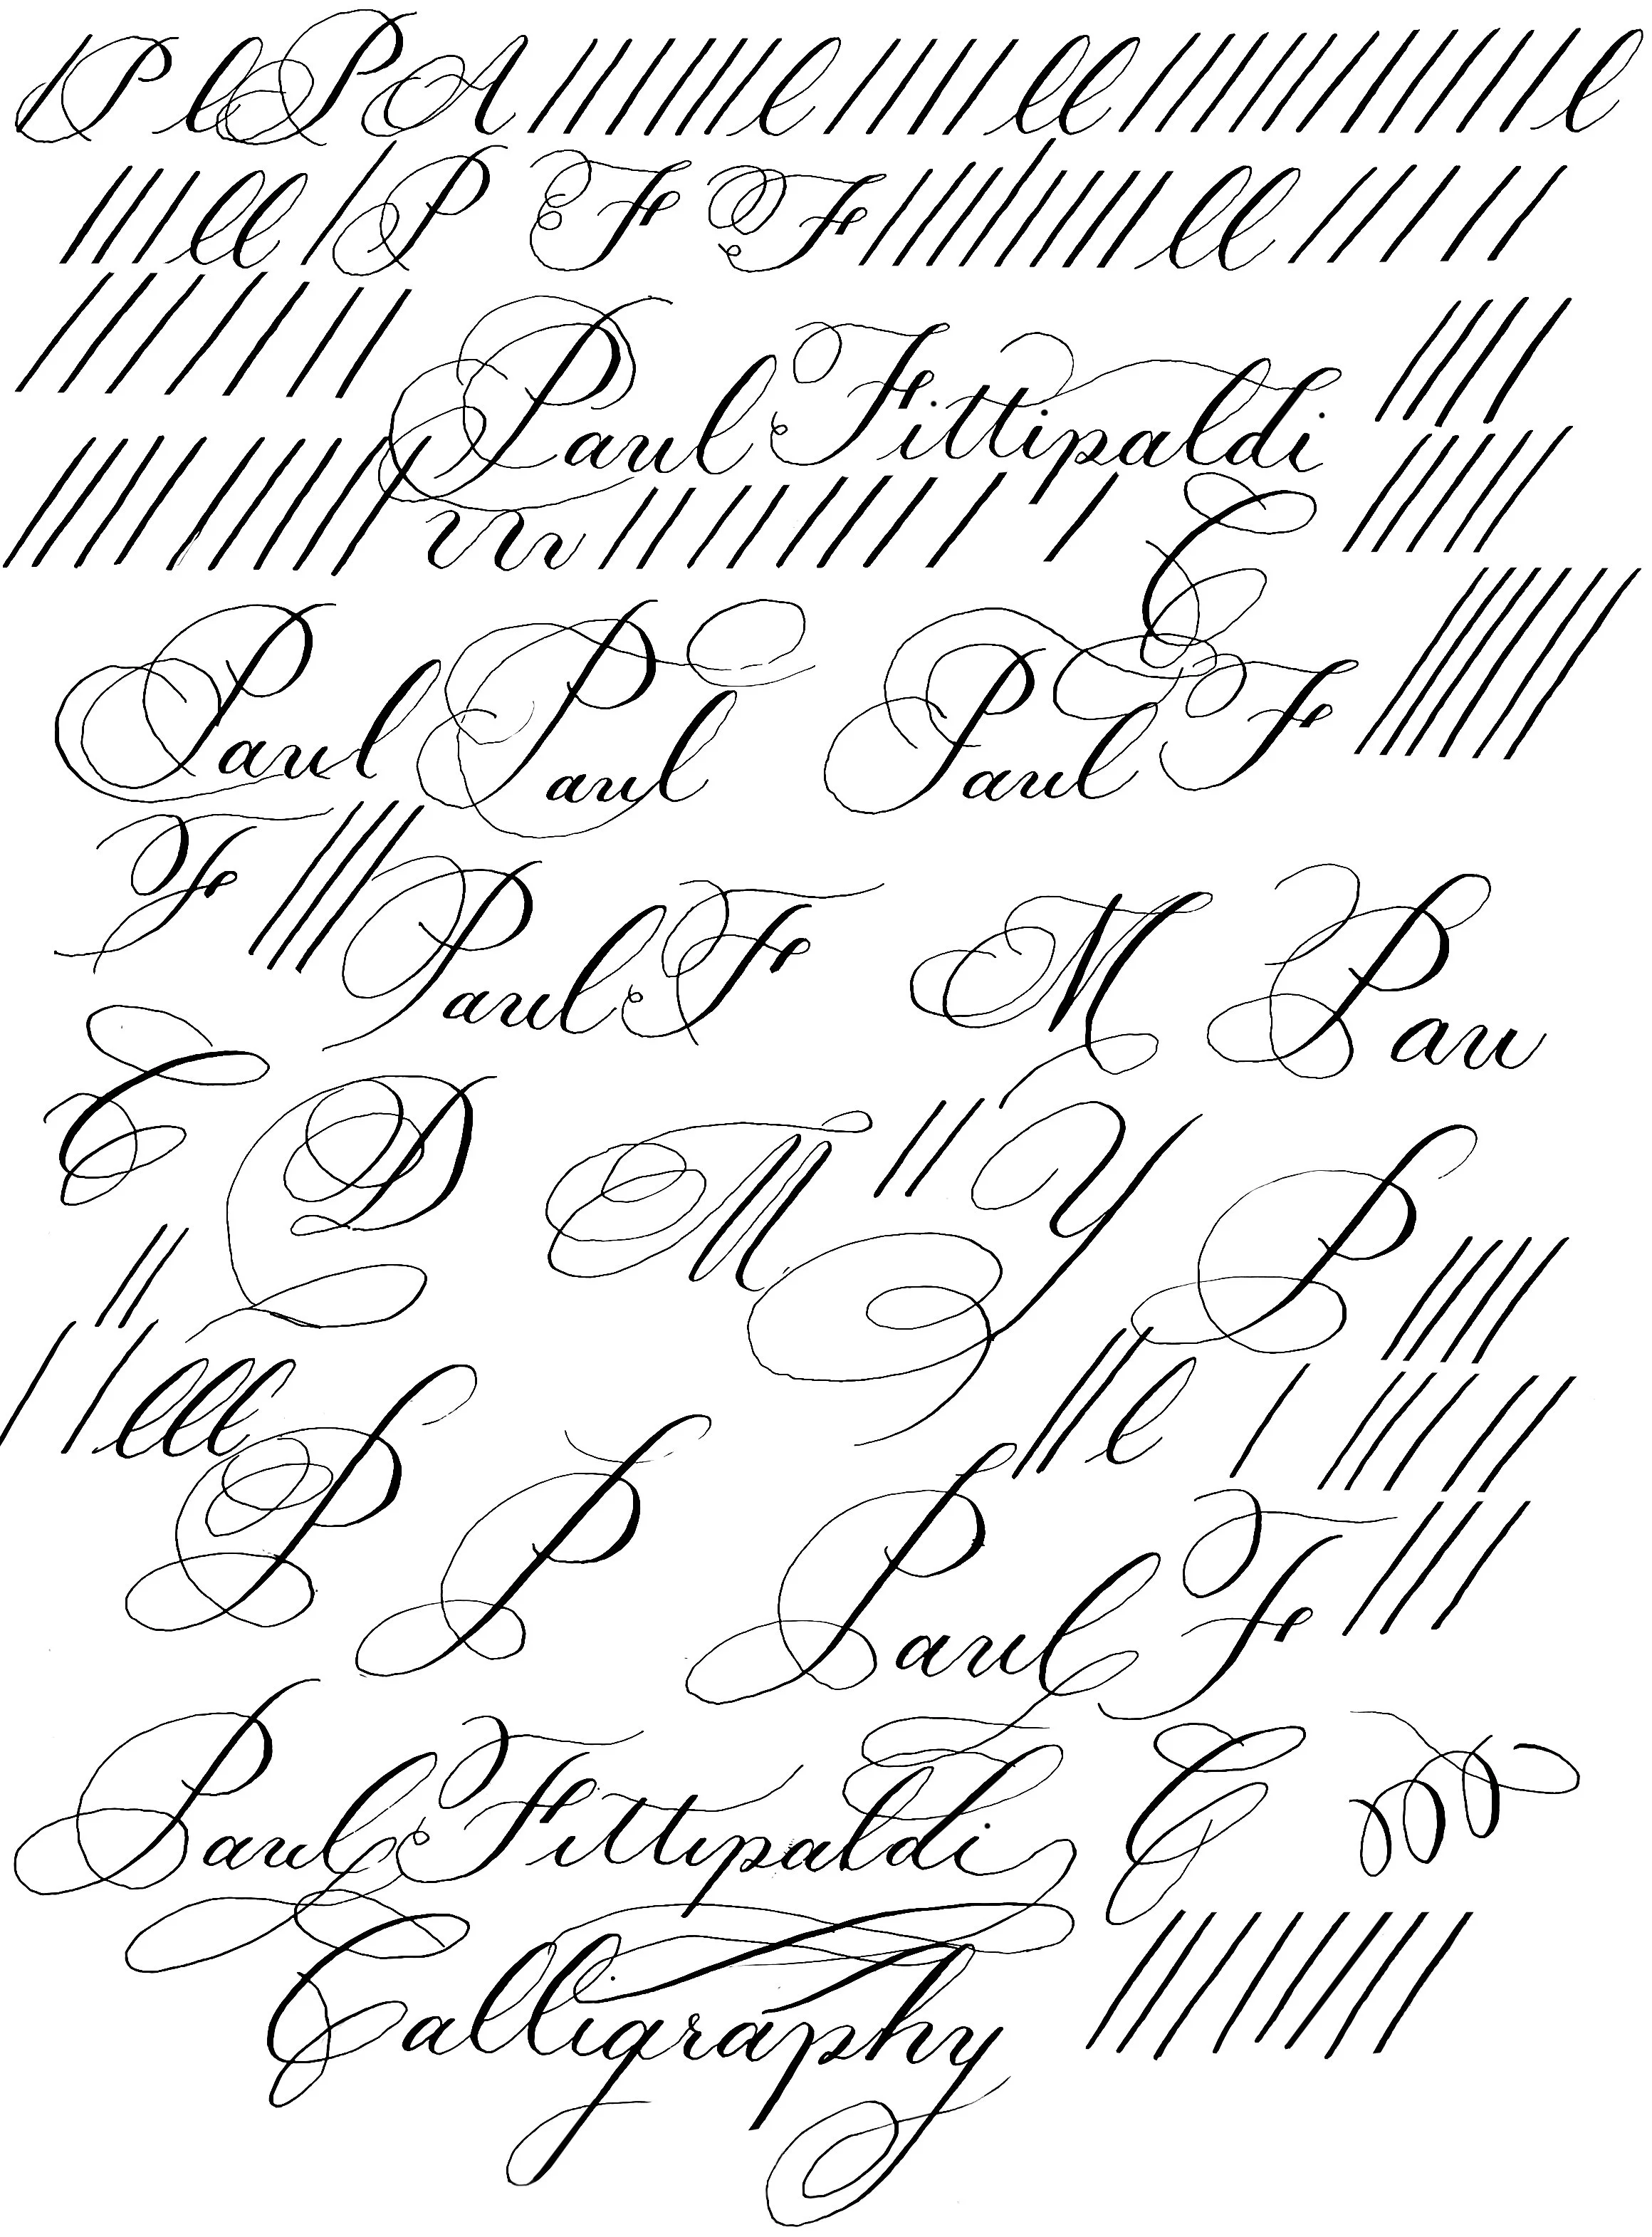 P l P A l l l l
l l P F F l l
Paul Fittipaldi
C
Paul Paul Paul F
F Paul F M Pau
C D M Y P
l l l P P l Paul F
Paul Fittipaldi C
Calligraphy